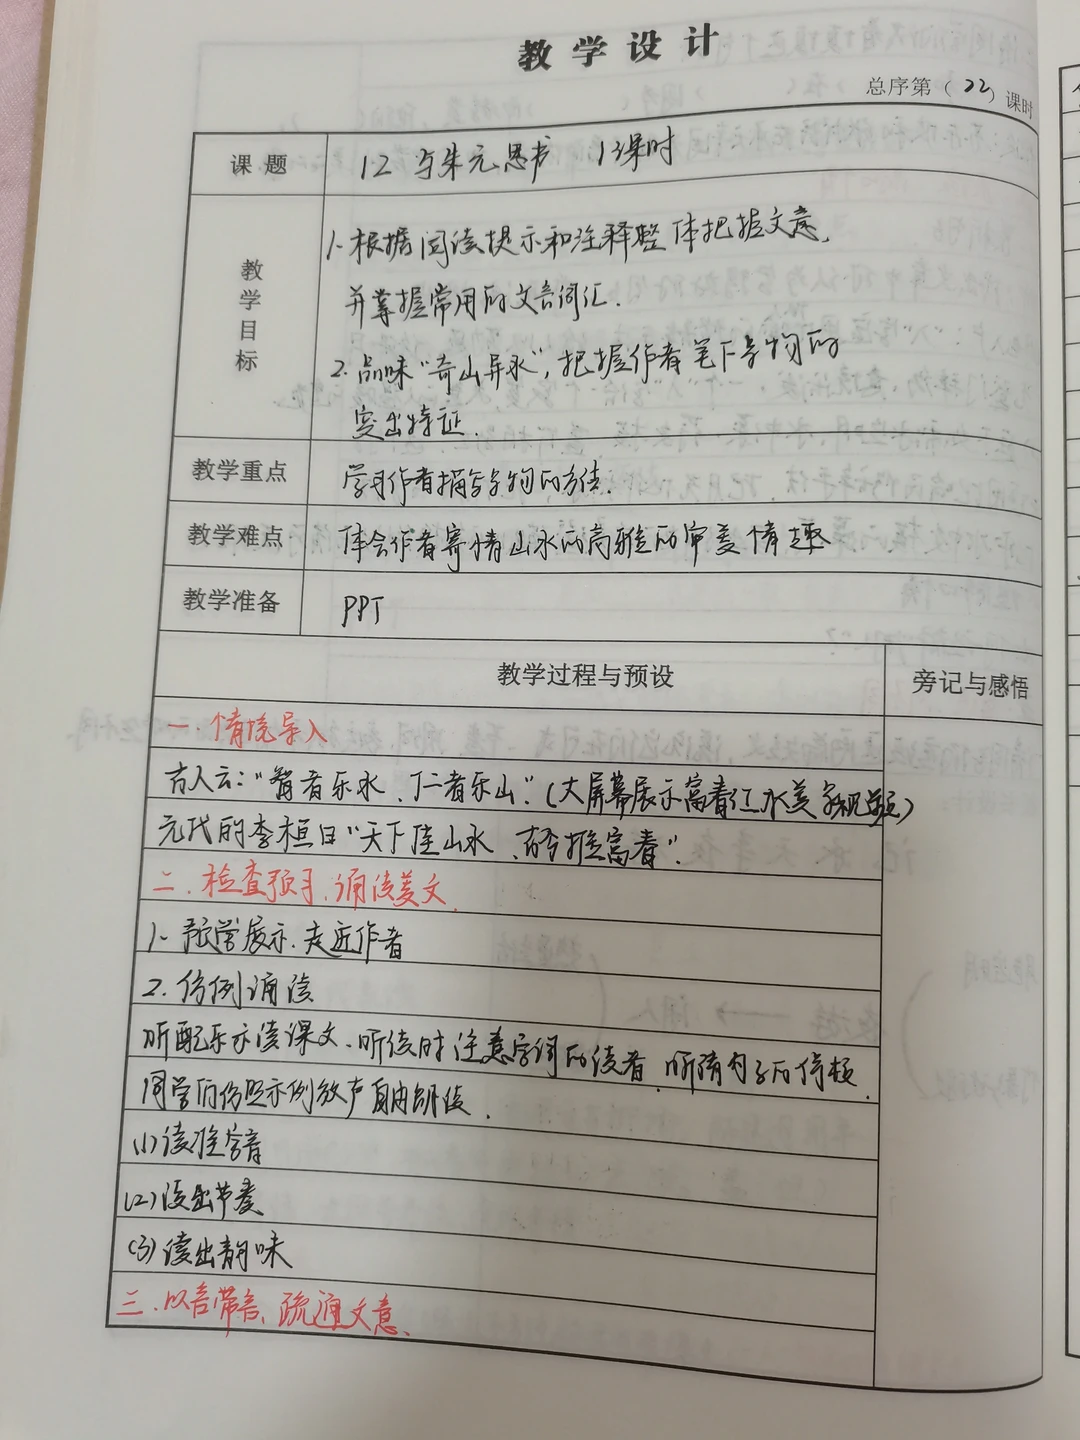 教学设计
总序第（22）课时
课题 12 与朱元思书 1课时
教学目标
1. 根据阅读提示和注释整体把握文意，
并掌握常用的文言词汇.
2. 品味“奇山异水”，把握作者笔下景物的
突出特征.
教学重点 学习作者描写景物的方法.
教学难点 体会作者寄情山水的高雅的审美情趣
教学准备 PPT
教学过程与预设 旁记与感悟
一. 情境导入
古人云：“智者乐水、仁者乐山”.（大屏幕展示富春江水美景视频）
元代的李桓曰“天下佳山水、古今推富春”.
二. 检查预习, 诵读美文.
1. 预学展示. 走近作者
2. 仿例诵读
听配乐示读课文、听读时注意字词的读音. 听清句子的停顿.
同学们仿照示例放声自由朗读.
(1) 读准字音
(2) 读出节奏
(3) 读出韵味
三. 以言带言, 疏通文意.